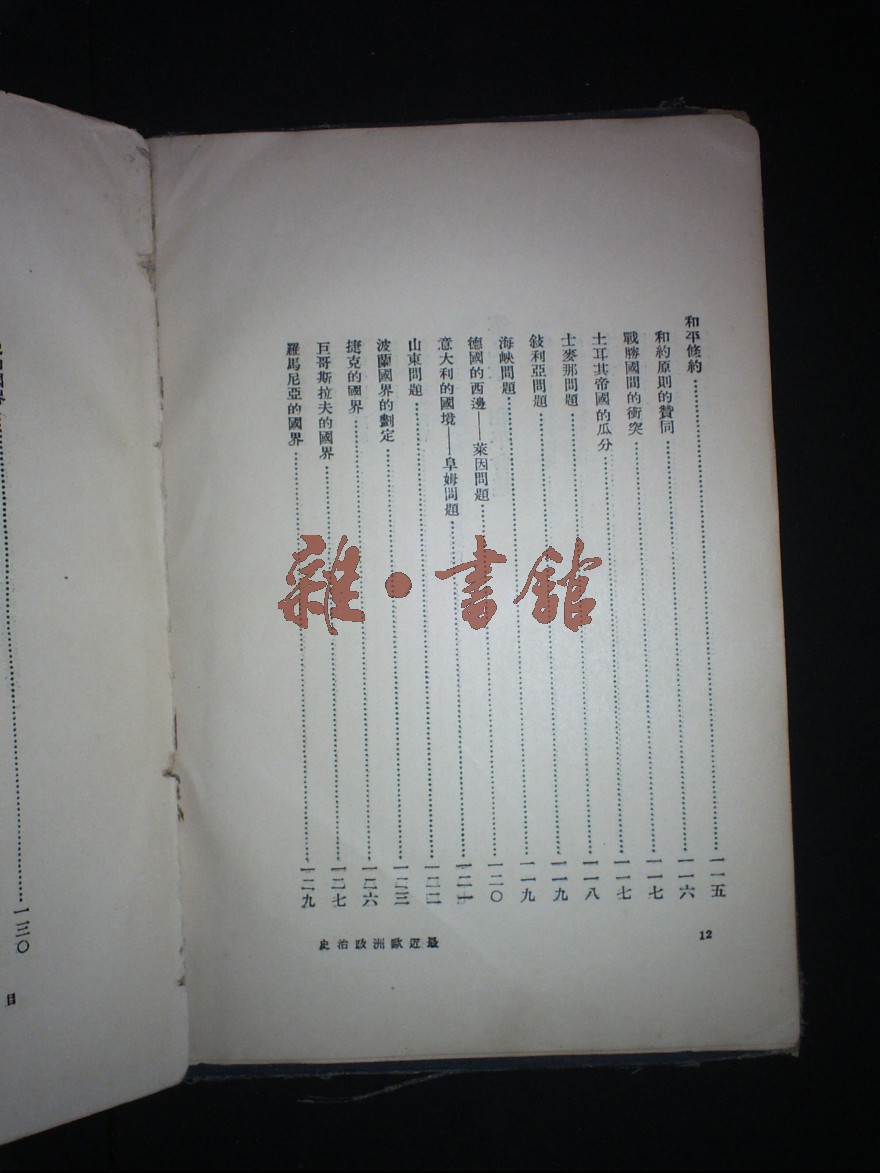 和平條約……一一五
和約原則的贊同……一一六
戰勝國間的衝突……一一七
土耳其帝國的瓜分……一一七
士麥那問題……一一八
敍利亞問題……一一九
海峽問題……一一九
德國的西邊——萊因問題……一二〇
意大利的國境——阜姆問題……一二一
山東問題……一二二
波蘭國界的劃定……一二三
捷克的國界……一二六
巨哥斯拉夫的國界……一二七
羅馬尼亞的國界……一二九
史治政洲歐近最
12
雜·書館
國界……一三〇
目